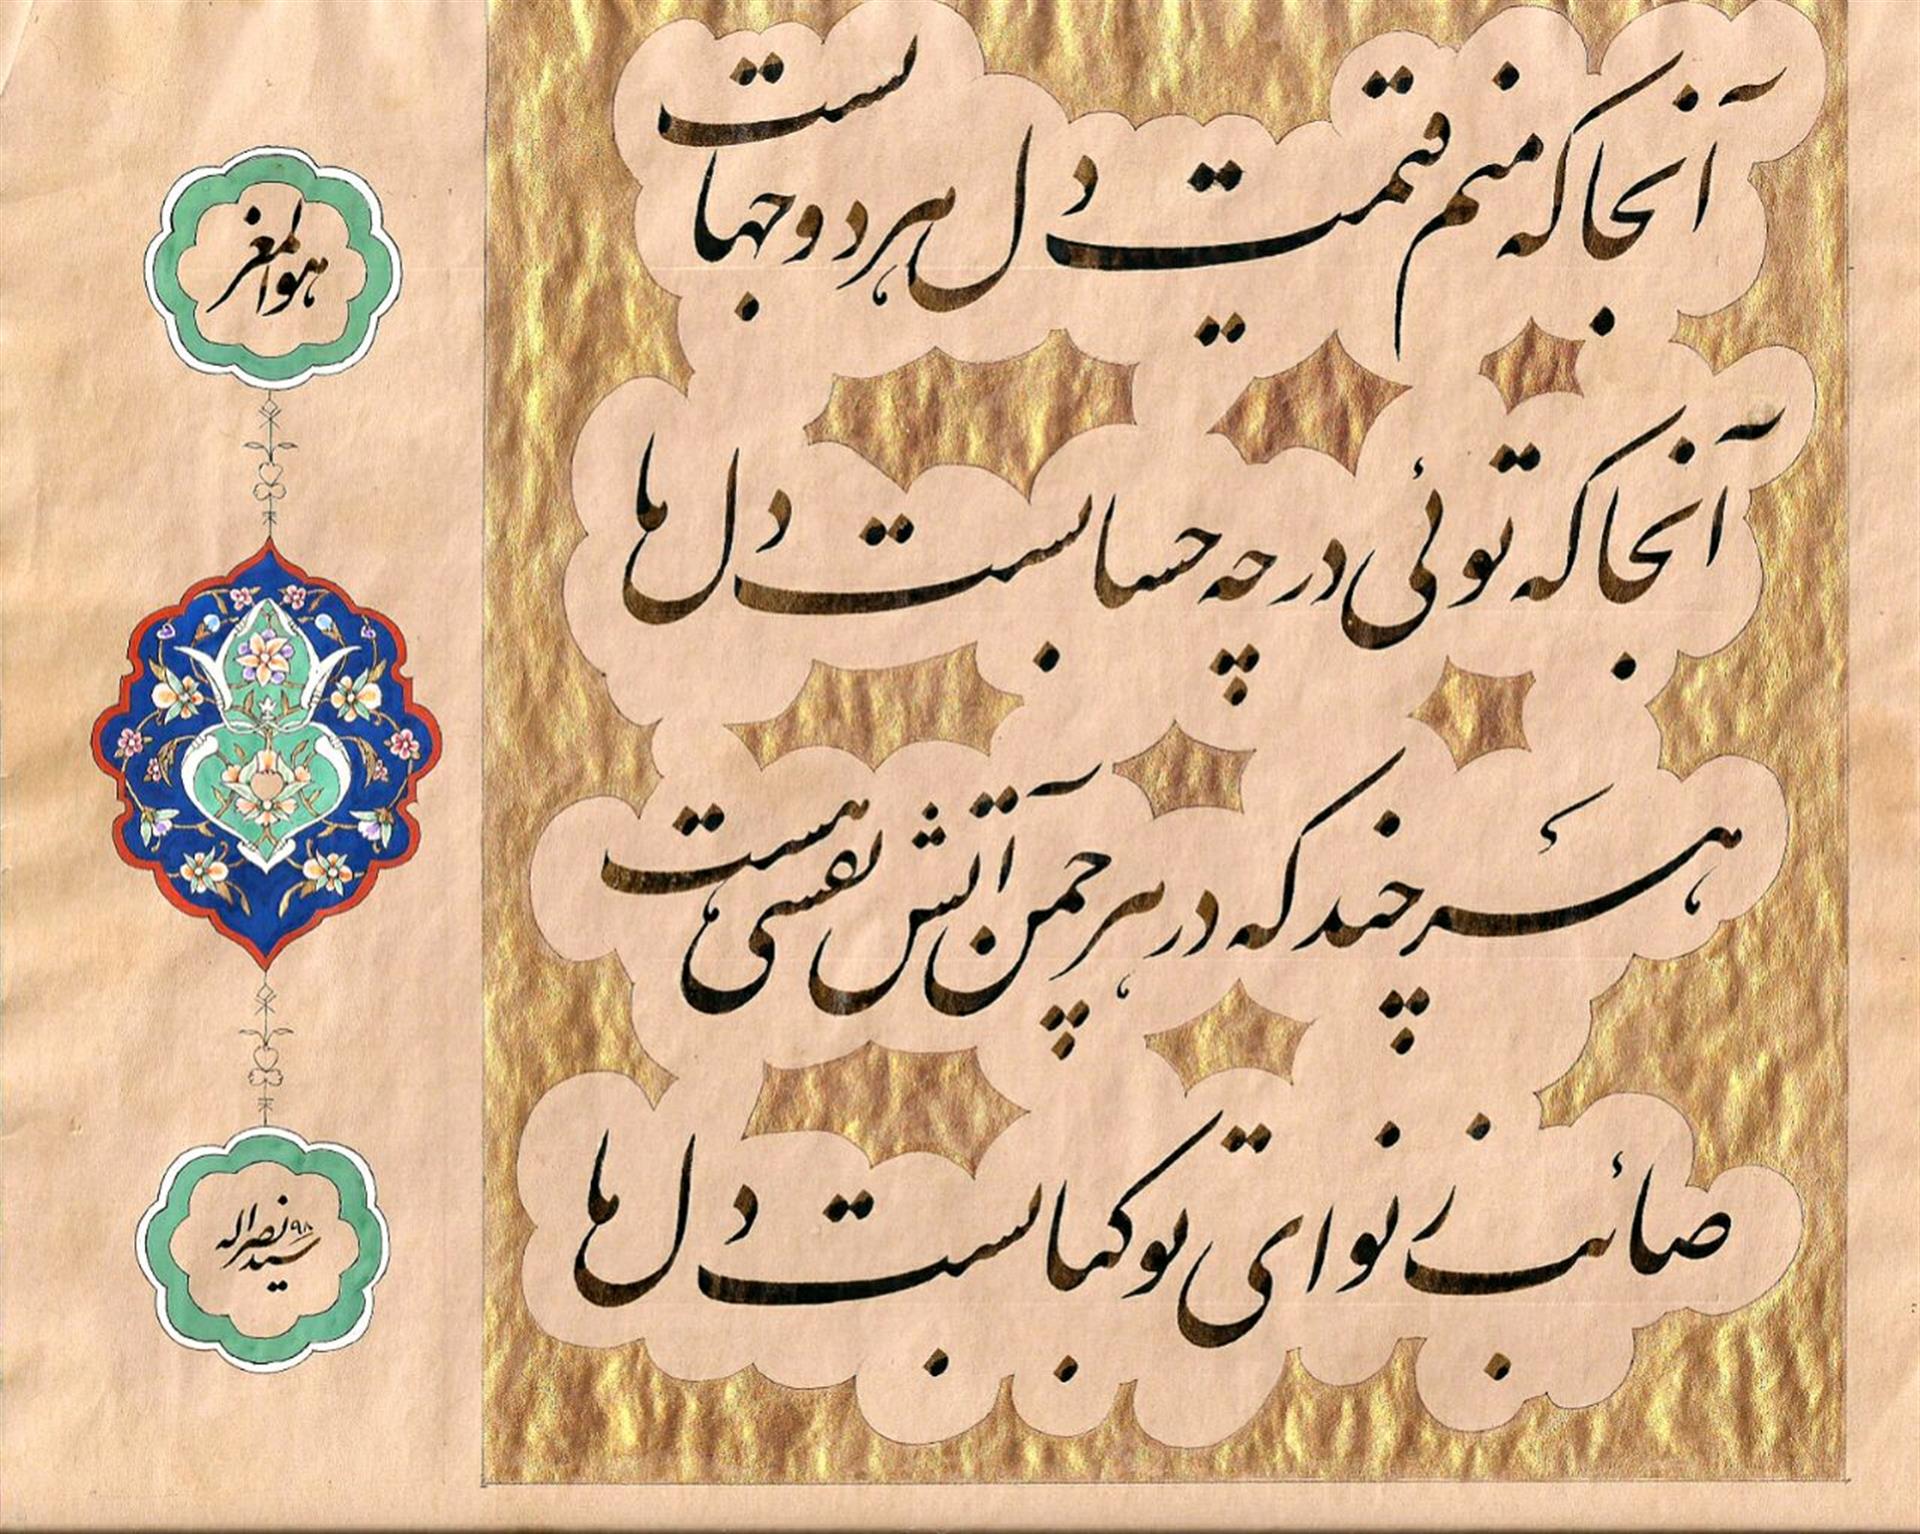 آنجا که منم قیمت دل هر دو جهانست
آنجا که توئی در چه حسابست دل ما
هر چند که در هر چمن آتش نفسی هست
صائب ز نوای تو کبابست دل ما
هوالمعز
سید نصراله ۹۸